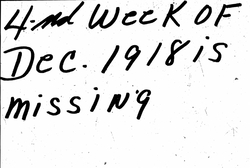 4nd Week OF
Dec. 1918 is
missing